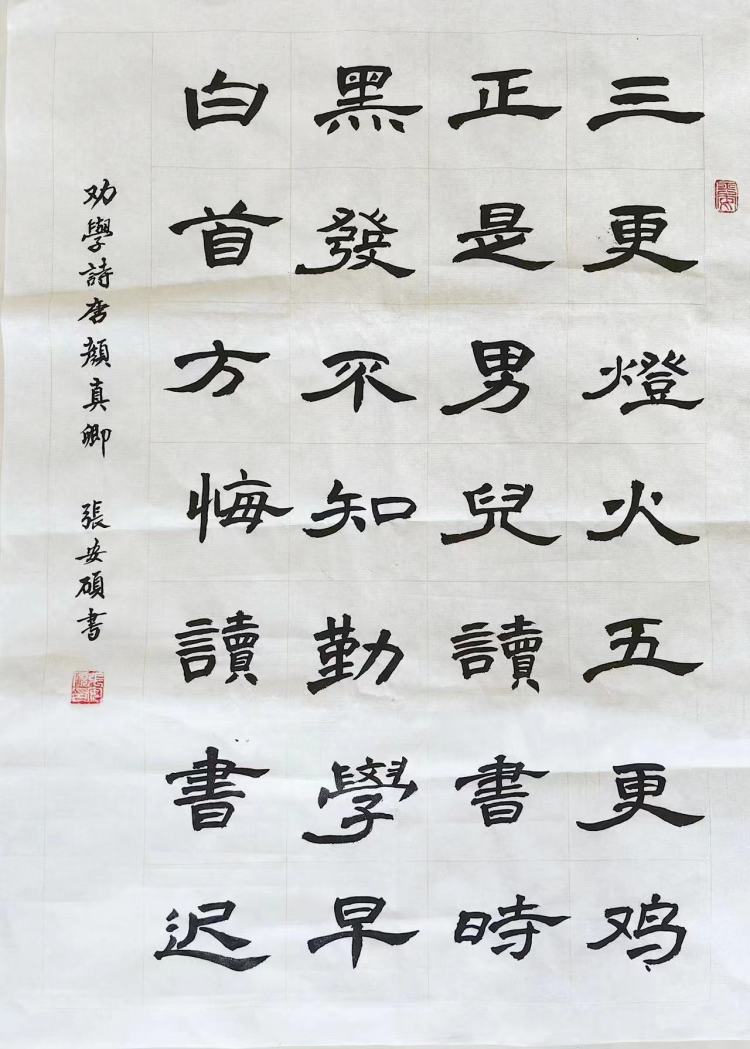 三更燈火五更鸡
正是男兒讀書時
黑發不知勤學早
白首方悔讀書迟
劝學詩唐顏真卿 張安碩書